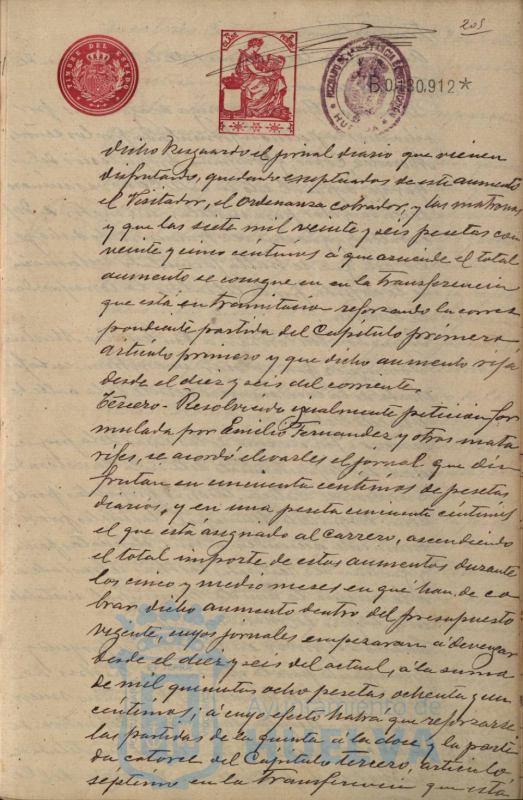 205
TIMBRE DEL ESTADO
B.0.480.912*
dicho Resguardo el jornal diario que vienen
disfrutando, quedando exceptuados de este aumento
el Visitador, el ordenanza cobrador, y las matronas
y que las siete mil veinte y seis pesetas con
veinte y cinco céntimos á que asciende el total
aumento se consigne en la transferencia
que está en tramitacion reforzando la corres
pondiente partida del Capitulo primero
articulo primero y que dicho aumento rija
desde el diez y seis del corriente.
Tercero - Resolviendo igualmente peticion for
mulada por Emilio Fernandez y otros mata
rifes, se acordó elevarles el jornal que dis
frutan en cincuenta centimos de pesetas
diarios, y en una peseta cincuenta céntimos
el que está asignado al Carrero, ascendiendo
el total importe de estos aumentos durante
los cinco y medio meses en que han de co
brar dicho aumento dentro del presupuesto
vigente, cuyos jornales empezaran á devengar
desde el diez y seis del actual, á la suma
de mil quinientas ocho pesetas ochenta y un
céntimos; á cuyo efecto habrá que reforzarse
las partidas de la quinta á la doce y la parti
da catorce del Capitulo tercero, articulo
septimo en la transferencia que está
Ayuntamiento de
HUELVA